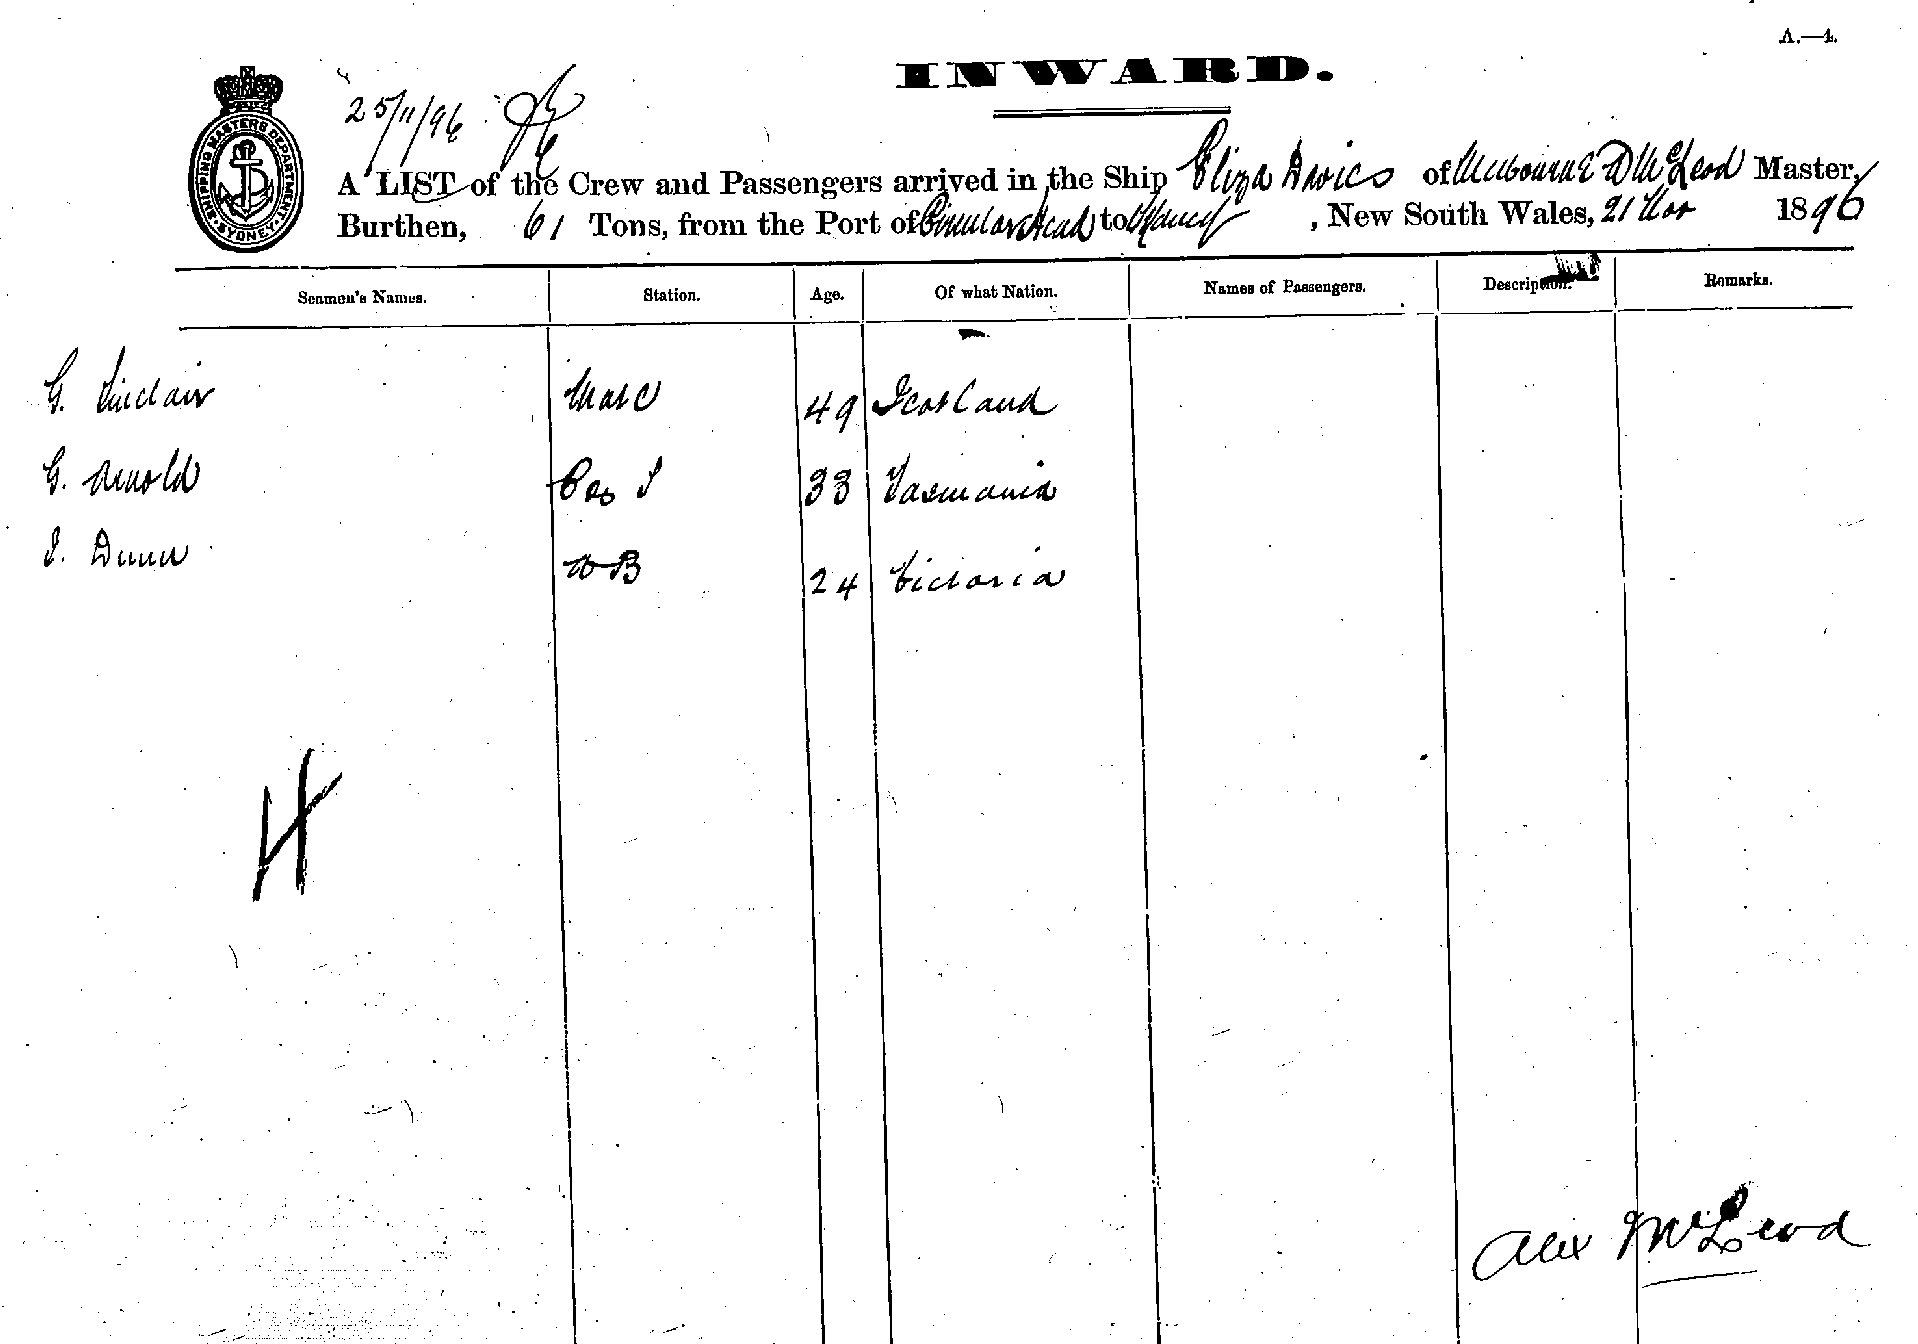 A.—4.
INWARD.
SHIPPING MASTERS DEPARTMENT SYDNEY
25/11/96
A LIST of the Crew and Passengers arrived in the Ship Eliza Davies of Melbourne D McLeod Master,
Burthen, 61 Tons, from the Port of Circular Head to Sydney, New South Wales, 21 Nov 1896
Seamen's Names. Station. Age. Of what Nation. Names of Passengers. Description. Remarks.
G. Sinclair Mate 49 Scotland
G. Arnold 33 Tasmania
J. Dunn AB 24 Victoria
4
Alex McLeod